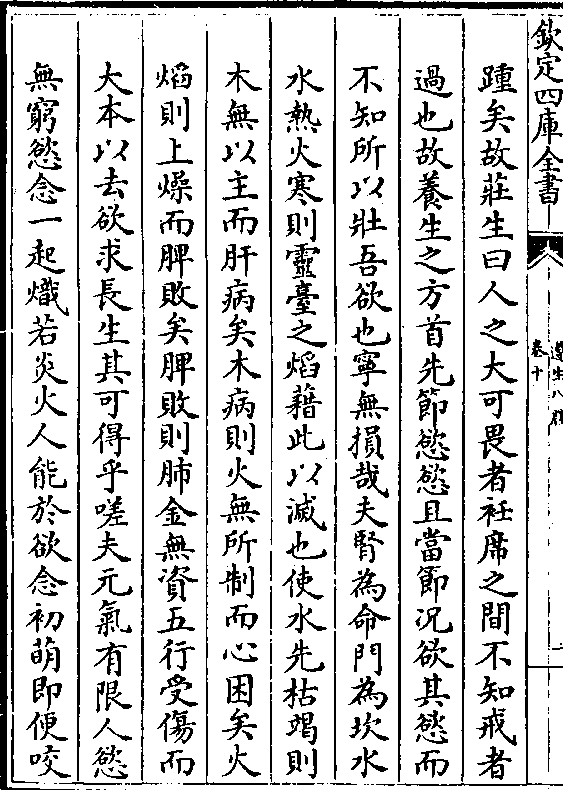 欽定四庫全書
遵生八牋
卷十
踵矣故莊生曰人之大可畏者袵席之間不知戒者
過也故養生之方首先節慾慾且當節況欲其慾而
不知所以壯吾欲也寧無損哉夫腎為命門為坎水
水熱火寒則靈臺之熖藉此以滅也使水先枯竭則
木無以主而肝病矣木病則火無所制而心困矣火
熖則上燥而脾敗矣脾敗則肺金無資五行受傷而
大本以去欲求長生其可得乎嗟夫元氣有限人慾
無窮慾念一起熾若炎火人能於欲念初萌即便咬